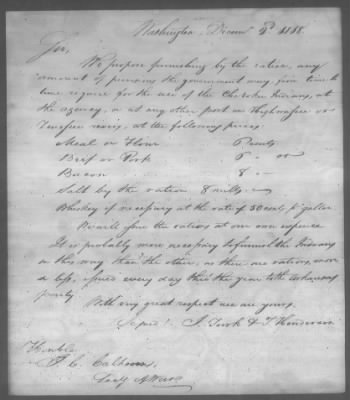 Washington, Decem 8th 1818.
Sir,
We propose furnishing by the ration, any
amount of persons the government may, from time to
time require for the use of the Cherokee Indians, at
the agency, or at any other post on Highwassee or
Tenessee rivers, at the following prices.
Meal or Flour 6 cents
Beef or Pork 6
Bacon 8
Salt by the ration 8 mills
Whiskey if necessary at the rate of 50 cents pr gallon
We will issue the rations at our own expence
It is probably more necessary to furnish the Indians
in this way than the other, as there are rations, more
or less, issued every day thro the year to the exhausted
party.
With very great respect we are yours,
Signed J. Turk & T. Henderson
Honble
J. C. Calhoun,
Secy of War